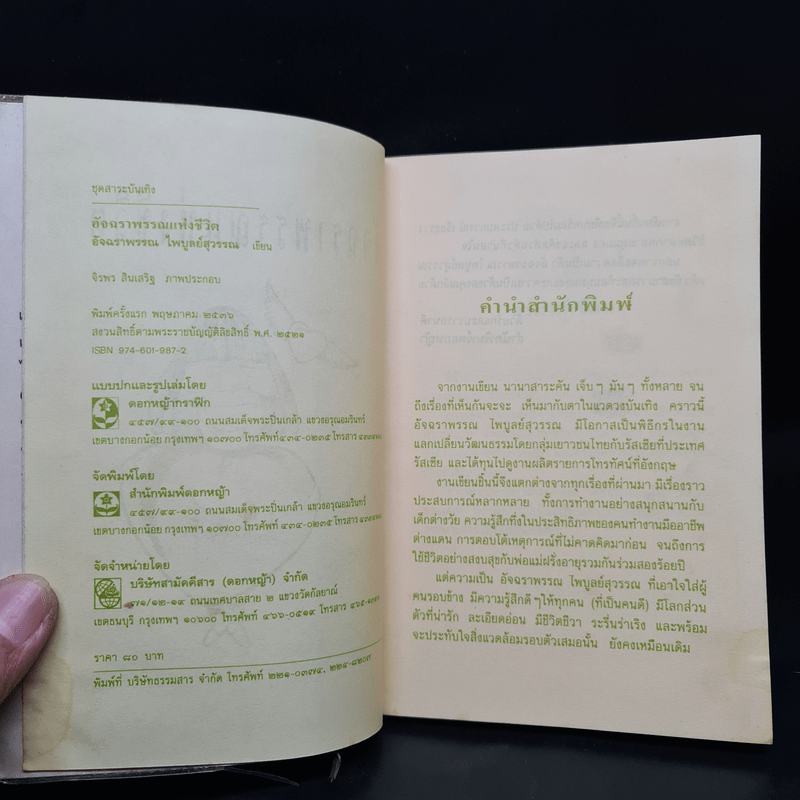 ชุดสาระบันเทิง
อัจฉราพรรณแห่งชีวิต
อัจฉราพรรณ ไพบูลย์สุวรรณ เขียน
จิรพร สินเสริฐ ภาพประกอบ
พิมพ์ครั้งแรก พฤษภาคม ๒๕๓๖
สงวนสิทธิ์ตามพระราชบัญญัติลิขสิทธิ์ พ.ศ. ๒๕๒๑
ISBN 974-601-987-2
แบบปกและรูปเล่มโดย
ดอกหญ้ากราฟิก
๔๕๗/๙๙-๑๐๐ ถนนสมเด็จพระปิ่นเกล้า แขวงอรุณอมรินทร์
เขตบางกอกน้อย กรุงเทพฯ ๑๐๗๐๐ โทรศัพท์ ๔๓๔-๐๒๓๕ โทรสาร
จัดพิมพ์โดย
สำนักพิมพ์ดอกหญ้า
๔๕๗/๙๙-๑๐๐ ถนนสมเด็จพระปิ่นเกล้า แขวงอรุณอมรินทร์
เขตบางกอกน้อย กรุงเทพฯ ๑๐๗๐๐ โทรศัพท์ ๔๓๔-๐๒๓๕ โทรสาร
จัดจำหน่ายโดย
บริษัทสามัคคีสาร (ดอกหญ้า) จำกัด
๑๗๑/๑๒-๑๔ ถนนเทศบาลสาย ๒ แขวงวัดกัลยาณ์
เขตธนบุรี กรุงเทพฯ ๑๐๖๐๐ โทรศัพท์ ๔๖๖-๐๕๑๙ โทรสาร
ราคา ๘๐ บาท
พิมพ์ที่ บริษัทธรรมสาร จำกัด โทรศัพท์ ๒๒๑-๐๓๗๔,
คำนำสำนักพิมพ์
จากงานเขียน นานาสาระคัน เจ็บๆ มันๆ ทั้งหลาย จน
ถึงเรื่องที่เห็นกันจะจะ เห็นมากับตาในแวดวงบันเทิง คราวนี้
อัจฉราพรรณ ไพบูลย์สุวรรณ มีโอกาสเป็นพิธีกรในงาน
แลกเปลี่ยนวัฒนธรรมโดยกลุ่มเยาวชนไทยกับรัสเซียที่ประเทศ
รัสเซีย และได้ทุนไปดูงานผลิตรายการโทรทัศน์ที่อังกฤษ
งานเขียนชิ้นนี้จึงแตกต่างจากทุกเรื่องที่ผ่านมา มีเรื่องราว
ประสบการณ์หลากหลาย ทั้งการทำงานอย่างสนุกสนานกับ
เด็กต่างวัย ความรู้สึกทึ่งในประสิทธิภาพของคนทำงานมืออาชีพ
ต่างแดน การตอบโต้เหตุการณ์ที่ไม่คาดคิดมาก่อน จนถึงการ
ใช้ชีวิตอย่างสงบสุขกับพ่อแม่ฝรั่งอายุรวมกันร่วมสองร้อยปี
แต่ความเป็น อัจฉราพรรณ ไพบูลย์สุวรรณ ที่เอาใจใส่ผู้
คนรอบข้าง มีความรู้สึกดีๆ ให้ทุกคน (ที่เป็นคนดี) มีโลกส่วน
ตัวที่น่ารัก ละเอียดอ่อน มีชีวิตชีวา ระรื่นร่าเริง และพร้อม
จะประทับใจสิ่งแวดล้อมรอบตัวเสมอนั้น ยังคงเหมือนเดิม